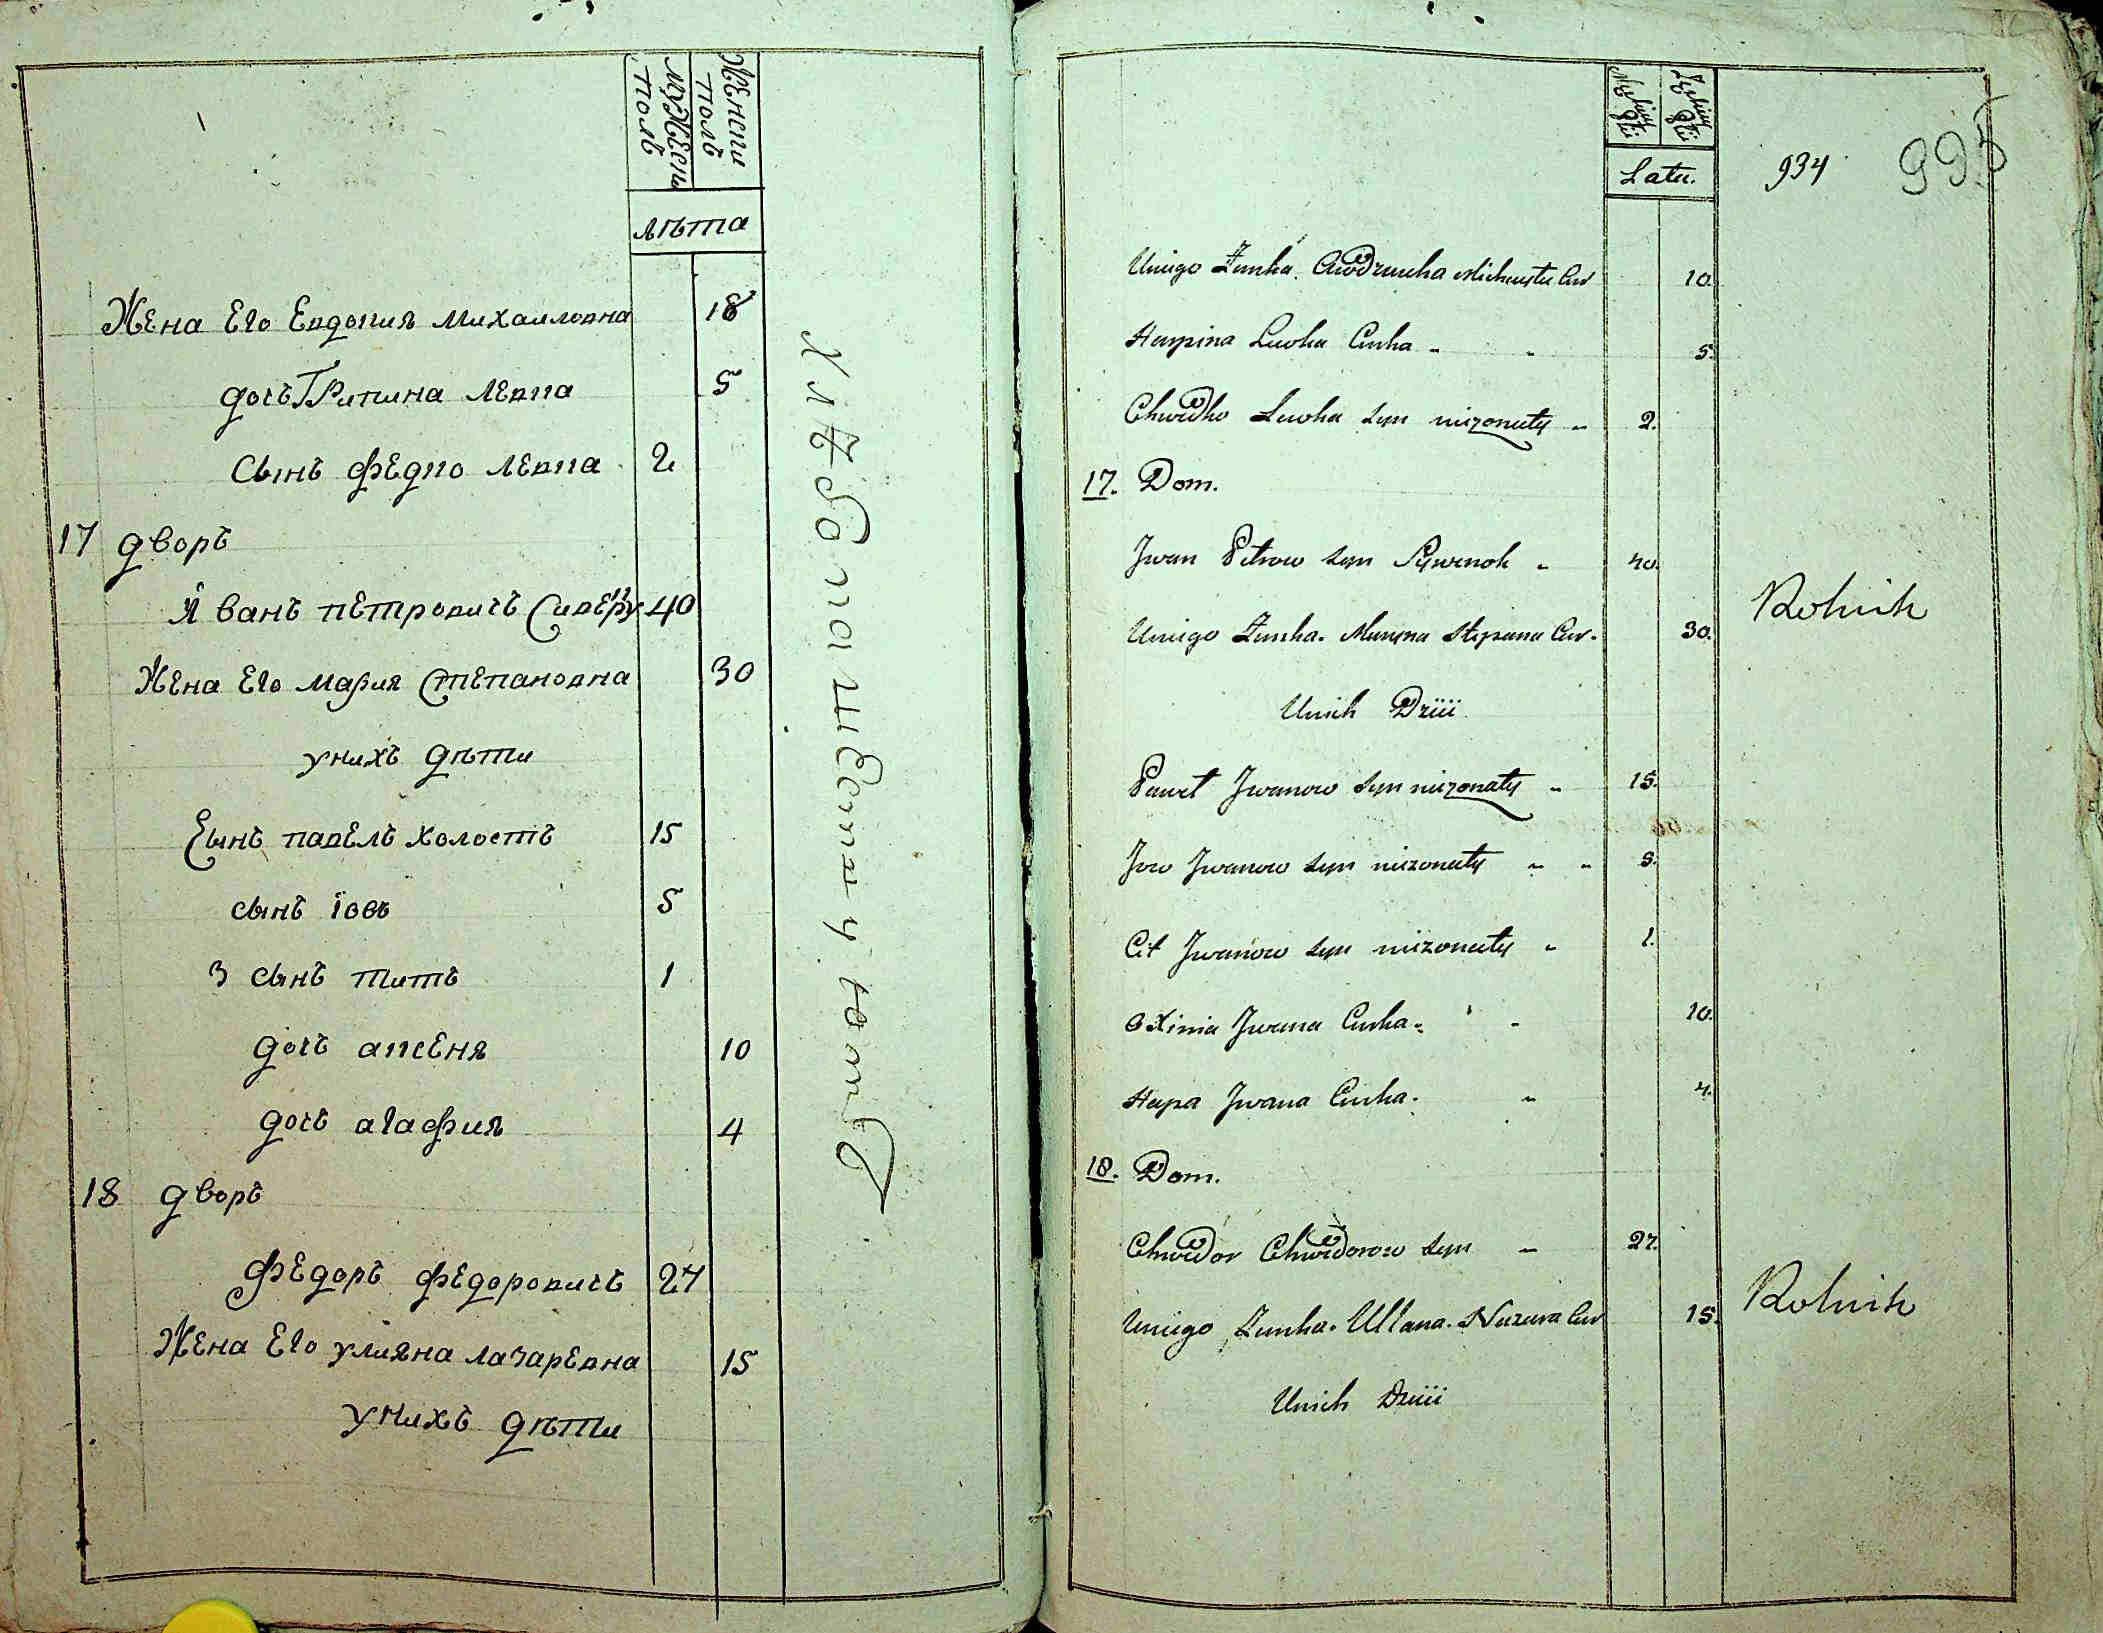 Женски полъ
Мужески полъ
лѣта
Жена Его Евдокия михаиловна 18
дочъ Грипина левка 5
сынъ федко левка 2
17 дворъ
Иванъ петровичъ Сиверу 40
Жена Его мария Степановна 30
у нихъ дѣти
Сынъ павелъ холостъ 15
сынъ іовъ 5
3 сынъ титъ 1
дочъ аксеня 10
дочъ агафия 4
18 дворъ
федоръ федоровичъ 27
Жена Его улияна лазаревна 15
у нихъ дѣти
Хлѣбопашествуютъ
Latu.
934
995
Uniego Zunka. Awdzuuha Michayła Cur 10.
Hapina Lewka Curka 5.
Chwedko Lewka syn niezonaty 2.
17. Dom.
Jwan Petrow syn Sywenok 40.
Rolnik
Uniego Zunka. Maryna Stepana Cur. 30.
Unich Dziii
Paweł Jwanow syn niezonaty 15.
Jow Jwanow syn niezonaty 5.
Cit Jwanow syn niezonaty 1.
Oxinia Jwana Curka 10.
Hapa Jwana Curka. 4.
18. Dom.
Chwedor Chwedorow syn 27.
Rolnik
Uniego Zunka. Ullana. Nazara Cur 15.
Unich Dziii